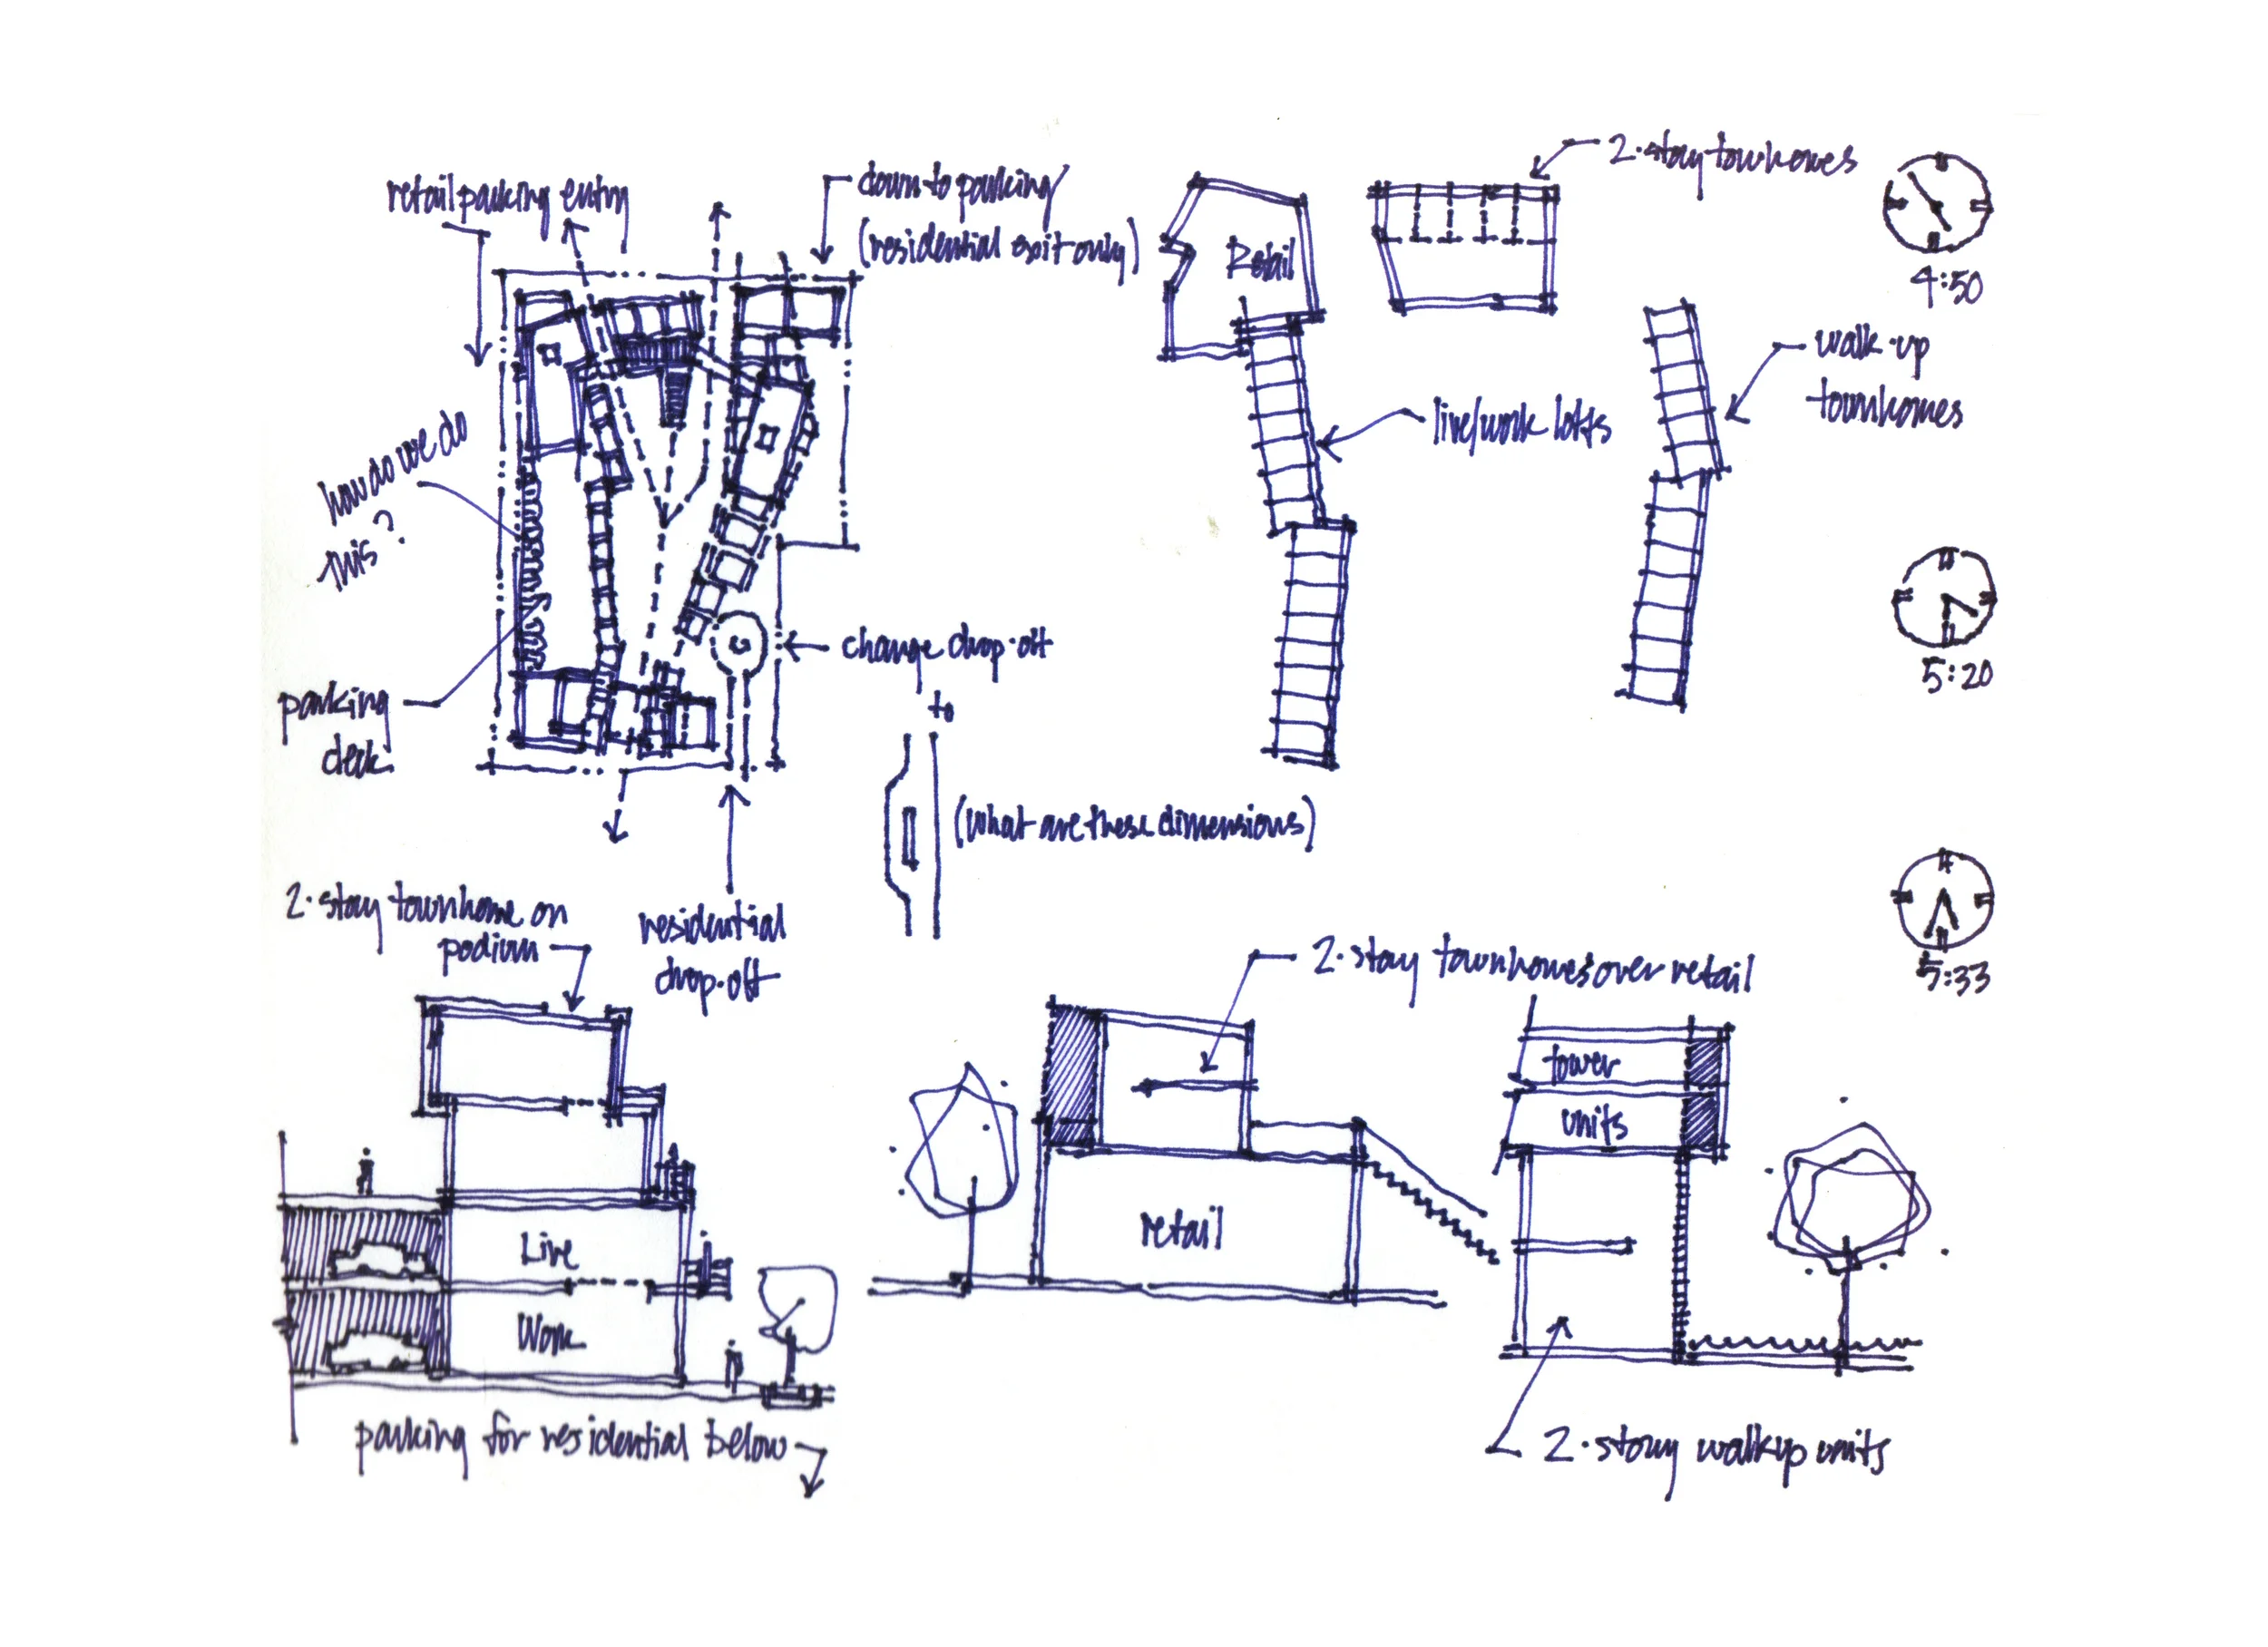 retail parking entry
down to parking
(residential exit only)
how do we do
this?
parking
deck
change drop-off
to
(what are these dimensions)
residential
drop-off
Retail
2-story townhomes
live/work lofts
walk-up
townhomes
4:50
5:20
5:33
2-story townhome on
podium
Live
Work
parking for residential below
2-story townhomes over retail
retail
tower
units
2-story walkup units